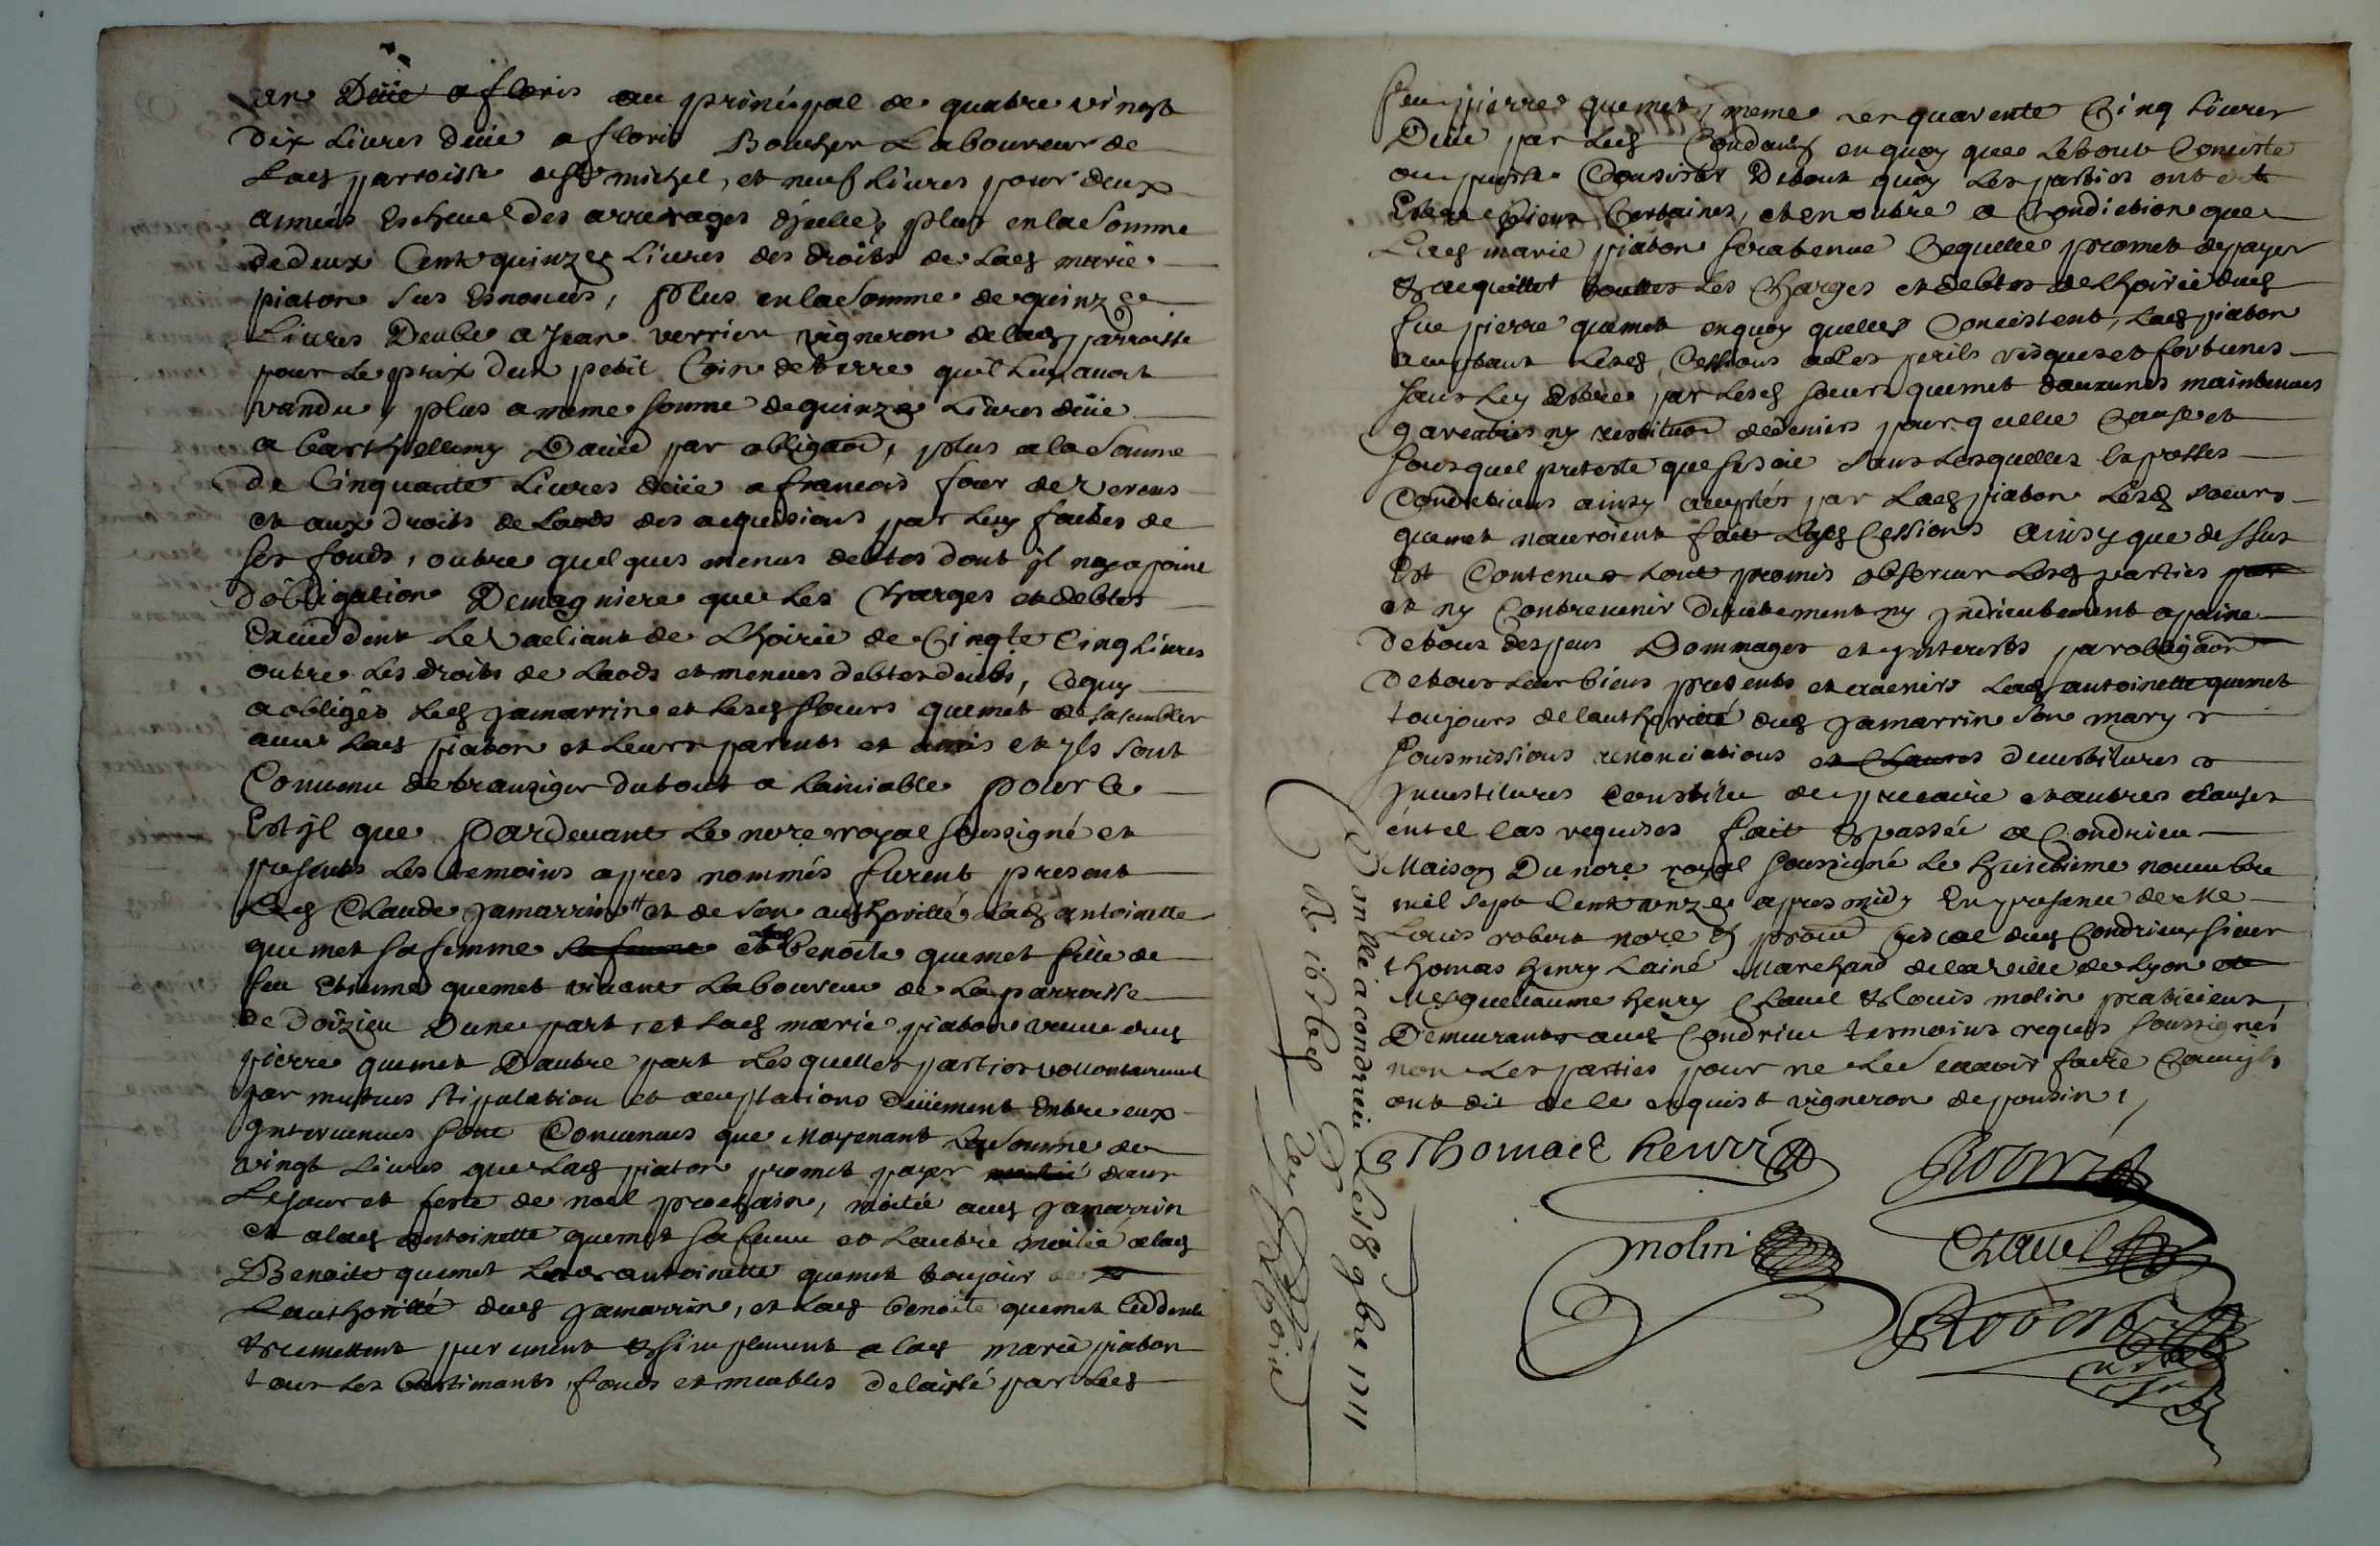 an Düe a floris au principal de quatre vingt
dix Livres düe a floris Boucher Laboureur de
Lad parroisse de St michel, et neuf Livres pour deux
années Escheues des arrerages d'jcelle, plus en la Somme
de deux Cent quinze Livres des droits de Lad marie
piaton sus Enoncés, plus en la Somme de quinze
Livres Deube a Jean verrier vigneron de lad parroisse
pour Le prix dun petit Coin de terre quil Luy avoit
vandu, plus a meme somme de quinze Livres düe
a Barthellemy David par obligaon, plus a la Somme
De Cinquante Livres düe a francois four de
et aux droits de Laods des acquisions par Luy faites de
ses fonds, outre quelques menus debtes dont jl ny a point
d'obligation Demagniere que Les Charges et debtes
Exceddent Le Vaeliant de Lhoirie de Cinqte Cinq Livres
outre Les droits de Laods et menues debtes deubs, Ce quy
a obligés Led Jamarrin et Lesd soeurs quemet de sasembler
avec Lad piaton et Leurs parents et amis et jls sont
Convenu de transiger du tout a Lamiable pour Ce
Est jl que Pardevant Le nore royal soussigné et
presents Les temoins apres nommés furent present
Led Claude Jamarrin et de son authoritté Lad antoinette
quemet sa femme sa femme et benoite quemet fille de
feu Etienne quemet vivant Laboureur de La parroisse
de Doizieu Dune part, et Lad marie piaton veuve dud
pierre quemet Dautre part Lesquelles parties vollontairement
par mutues stipulation et acceptations düement Entre eux
Intervenues sont Convenues que Moyenant La Somme de
vingt Livres que Lad piaton promet payer dans
Le jour et feste de noel prochain, moitié aud Jamarrin
et a lad antoinette quemet sa femme et Lautre moitié a lad
Benoite quemet Lad antoinette quemet toujour de
Lauthoritté dud Jamarrin, et Lad benoite quemet Ceddent
et remettent purement et simplement a lad marie piaton
tous Les bastimants, fonds et meubles delaissé par Led
feu pierre quemet, meme en quarente Cinq Livres
Düe par Led en quoy que Le tout Consiste
ou puisse Consister De tout quoy Les parties ont dit
Estre biens Certaines, et en outre a Condiction que
Lad marie piaton sera tenue Ce quelle promet de payer
et acquitter touttes Les Charges et debtes de Lhoirie dud
feu pierre quemet en quoy quelles Concistent, Lad piaton
aceptant Lesd Cessions a ses perils risques et fortunes
sans Luy estre par Lesd soeurs quemet daucunes maintenues
garenties ny restituon de deniers pour quelle Cause et
sous quel preteste que se soie sans Lesquelles Expresses
Condictions ainsy aceptés par Lad piaton Lesd soeurs
quemet nauroient fait Lesd Cessions ainsy que dessus
Est Contenus tout promis observer Lesd parties par
et ny Contrevenir directement ny Indirectement a peine
de tous despens Dommages et jnterests par obligaon
De tous Leur biens presents et avenirs Lad antoinette quemet
toujours de Lauthoritté dud Jamarrin son mary
sousmissions renonciations et Clauses devestitures et
jnvestitures Constitu de precaire et autres clauses
en tel cas requises fait et passée a Condrieu
Maison Du nore royal soussigné Le huictieme novembre
mil sept Cent onze apres midy En presence de Me
Louis robert nore et fiscal dud Condrieu sieur
thomas henry Lainé Marchand de la ville de Lyon et
Mes guellaume henry Clavel et Louis molin praticiens
Demeurants aud Condrieu tesmoins requis soussignés
non Les parties pour ne Le scavoir faire Comm jls
ont dit de ce enquis et vigneron de pousin
Thomas henri
Robert
molin
Clavel
Robert
nore
Conllé a condrieu Le 18 9bre 1711